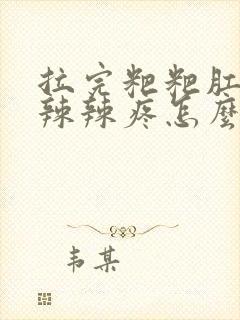 拉完粑粑肛
辣辣疼怎麼
韦某